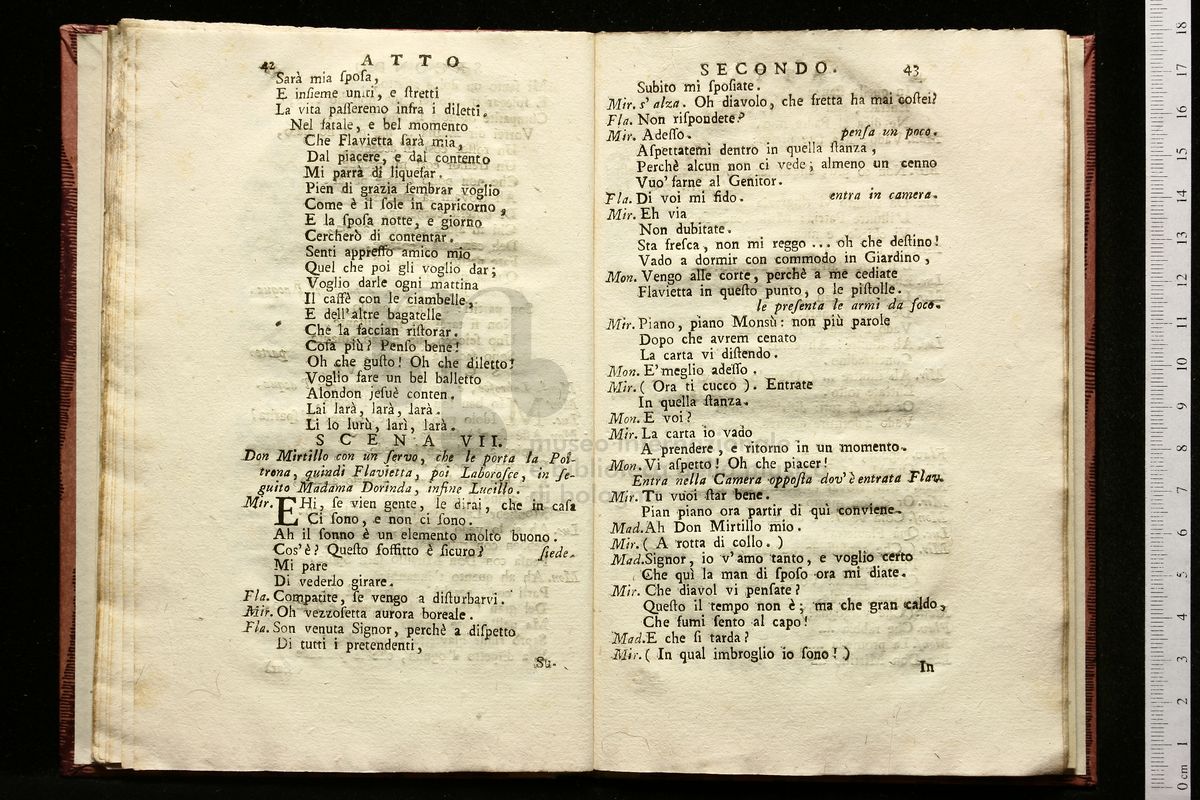 42 ATTO
Sarà mia ſpoſa,
E inſieme uniti, e ſtretti
La vita paſſeremo infra i diletti.
Nel fatale, e bel momento
Che Flavietta ſarà mia,
Dal piacere, e dal contento
Mi parrà di liquefar.
Pien di grazia ſembrar voglio
Come è il ſole in capricorno,
E la ſpoſa notte, e giorno
Cercherò di contentar.
Senti appreſſo amico mio
Quel che poi gli voglio dar;
Voglio darle ogni mattina
Il caffè con le ciambelle,
E dell'altre bagatelle
Che la faccian riſtorar.
Coſa più? Penſo bene!
Oh che guſto! Oh che diletto!
Voglio fare un bel balletto
Alondon jeſuè conten.
Lai larà, larà, larà.
Li lo lurù, larì, larà.
SCENA VII.
Don Mirtillo con un ſervo, che le porta la Pol-
trona, quindi Flavietta, poi Laboroſce, in ſe-
guito Madama Dorinda, infine Lucillo.
Mir. EHi, ſe vien gente, le dirai, che in caſa
Ci ſono, e non ci ſono.
Ah il ſonno è un elemento molto buono.
Cos'è? Queſto ſoffitto è ſicuro? ſiede.
Mi pare
Di vederlo girare.
Fla. Compatite, ſe vengo a diſturbarvi.
Mir. Oh vezzoſetta aurora boreale.
Fla. Son venuta Signor, perchè a diſpetto
Di tutti i pretendenti,
Su-
SECONDO. 43
Subito mi ſpoſiate.
Mir. s' alza. Oh diavolo, che fretta ha mai coſtei?
Fla. Non riſpondete?
Mir. Adeſſo. penſa un poco.
Aſpettatemi dentro in quella ſtanza,
Perchè alcun non ci vede; almeno un cenno
Vuo' farne al Genitor.
Fla. Di voi mi fido. entra in camera.
Mir. Eh via
Non dubitate.
Sta freſca, non mi reggo ... oh che deſtino!
Vado a dormir con commodo in Giardino,
Mon. Vengo alle corte, perchè a me cediate
Flavietta in queſto punto, o le piſtolle.
le preſenta le armi da foco.
Mir. Piano, piano Monsù: non più parole
Dopo che avrem cenato
La carta vi diſtendo.
Mon. E' meglio adeſſo.
Mir. ( Ora ti cucco ). Entrate
In quella ſtanza.
Mon. E voi?
Mir. La carta io vado
A prendere, e ritorno in un momento.
Mon. Vi aſpetto! Oh che piacer!
Entra nella Camera oppoſta dov'è entrata Flav.
Mir. Tu vuoi ſtar bene.
Pian piano ora partir di quì conviene.
Mad. Ah Don Mirtillo mio.
Mir. ( A rotta di collo. )
Mad. Signor, io v'amo tanto, e voglio certo
Che quì la man di ſpoſo ora mi diate.
Mir. Che diavol vi penſate?
Queſto il tempo non è; ma che gran caldo,
Che fumi ſento al capo!
Mad. E che ſi tarda?
Mir. ( In qual imbroglio io ſono! )
In